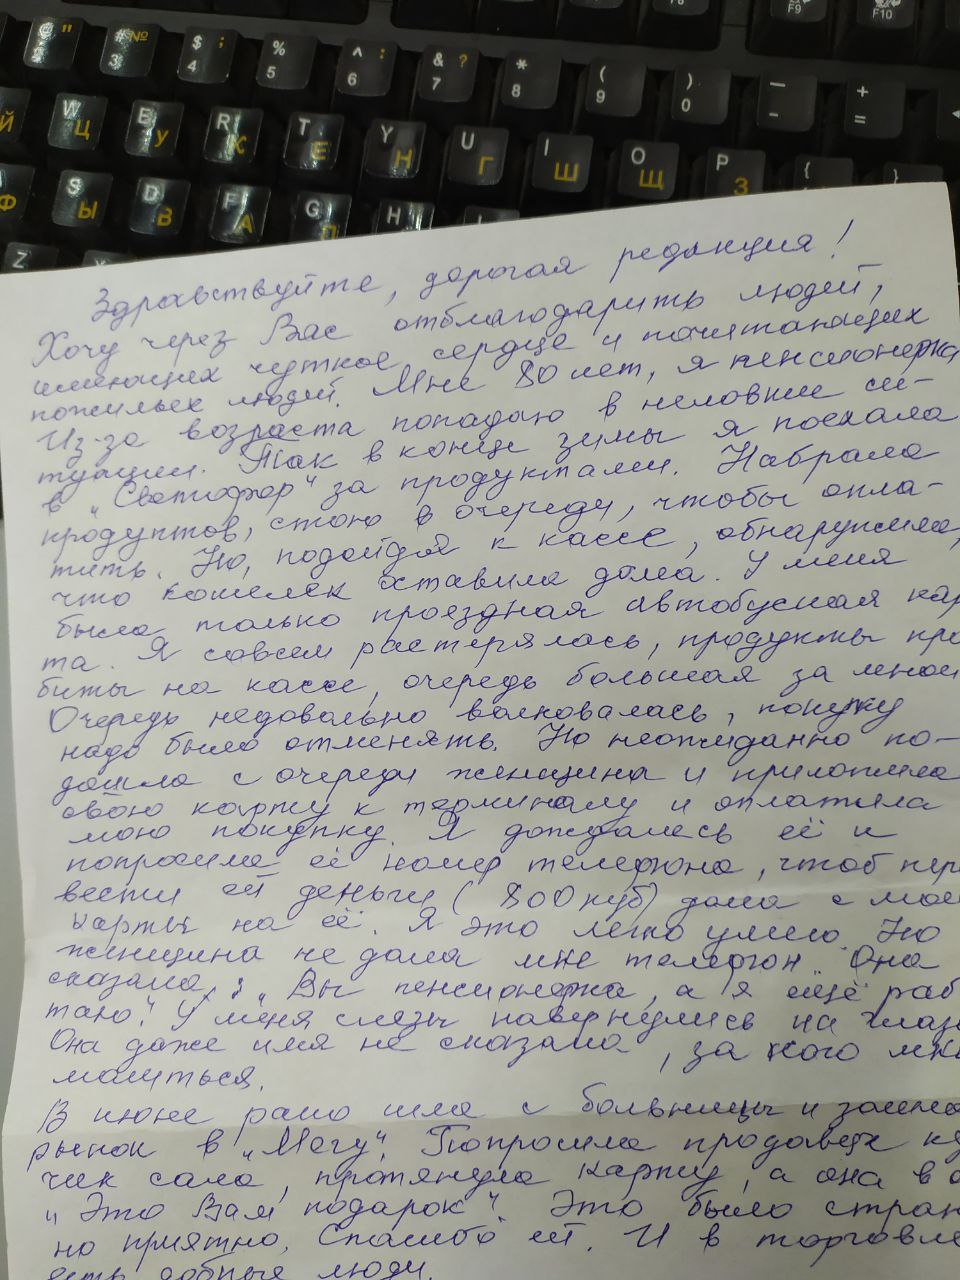 @ 2 "
# 3 №
$ 4 ;
% 5
^ 6 :
& 7 ?
* 8
( 9
) 0
— -
+ =
F9
F10
Й
W Ц
E У
R К
T Е
Y Н
U Г
I Ш
O Щ
P З
{
}
Ф
S Ы
D В
F А
G П
H
Z
Здравствуйте, дорогая редакция!
Хочу через Вас отблагодарить людей,
имеющих чуткое сердце и почитающих
пожилых людей. Мне 80 лет, я пенсионерка
Из-за возраста попадаю в неловкие си-
туации. Так в конце зимы я поехала
в „Светофор" за продуктами. Набрала
продуктов, стою в очереди, чтобы опла-
тить. Но, подойдя к кассе, обнаружила,
что кошелек оставила дома. У меня
была только проездная автобусная кар
та. Я совсем растерялась, продукты про
биты на кассе, очередь большая за мной
Очередь недовольно волновалась, покупку
надо было отменять. Но неожиданно по-
дошла с очереди женщина и приложила
свою карту к терминалу и оплатила
мою покупку. Я дождалась её и
попросила её номер телефона, чтоб пере
вести ей деньги (800 руб) дома с мое
карты на её. Я это легко умею. Но
женщина не дала мне телефон. Она
сказала: „Вы пенсионерка, а я ещё раб
таю". У меня слезы навернулись на глаза
Она даже имя не сказала, за кого мне
молиться.
В июне рано шла с больницы и зашла
рынок в „Мегу". Попросила продавца ку
чик сала, протянула карту, а она в о
„Это Вам подарок". Это было стран
но приятно. Спасибо ей. И в торговле
есть добрые люди.